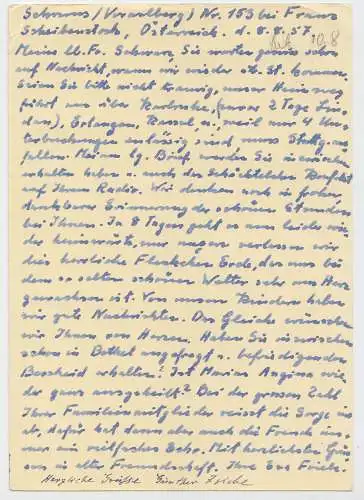 Schruns (Vorarlberg) Nr. 153 bei Franz
Scheibenstock, Österreich. d. 8.8.57.
Meine lb. Fr. Schwarz, Sie warten gewiss schon
auf Nachricht, wann wir wieder St. kommen.
Seien Sie bitte nicht traurig, unser Heimweg
führt uns über Karlsruhe, (zuvor 2 Tage Lin-
dau), Erlangen, Kassel u., weil nur 4 Un-
terbrechungen zulässig sind, muss Stuttg. aus-
fallen. Meinen lg. Brief werden Sie inzwischen
erhalten haben u. auch das Schächtelchen
auf Ihrem Radio. Wir denken noch in froher,
dankbarer Erinnerung der schönen Stunden
bei Ihnen. In 8 Tagen geht es nun leider wie-
der heimwärts, nur ungern verlassen wir
dies herrliche Fleckchen Erde, das uns bei
dem so selten schönen Wetter sehr ans Herz
gewachsen ist. Von unsern Kindern haben
wir gute Nachrichten. Das Gleiche wünschen
wir Ihnen von Herzen. Haben Sie inzwischen
schon in Bethel angefragt u. befriedigenden
Bescheid erhalten? Ist Marias Angina wie-
der ganz ausgeheilt? Bei der grossen Zahl
Ihrer Familienmitglieder reisst die Sorge nie
ab, dafür hat dann aber auch die Freude im-
mer ein vielfaches Echo. Mit herzlichsten Grüs-
sen in alter Freundschaft. Ihre Eva
Herzliche Grüsse Günther